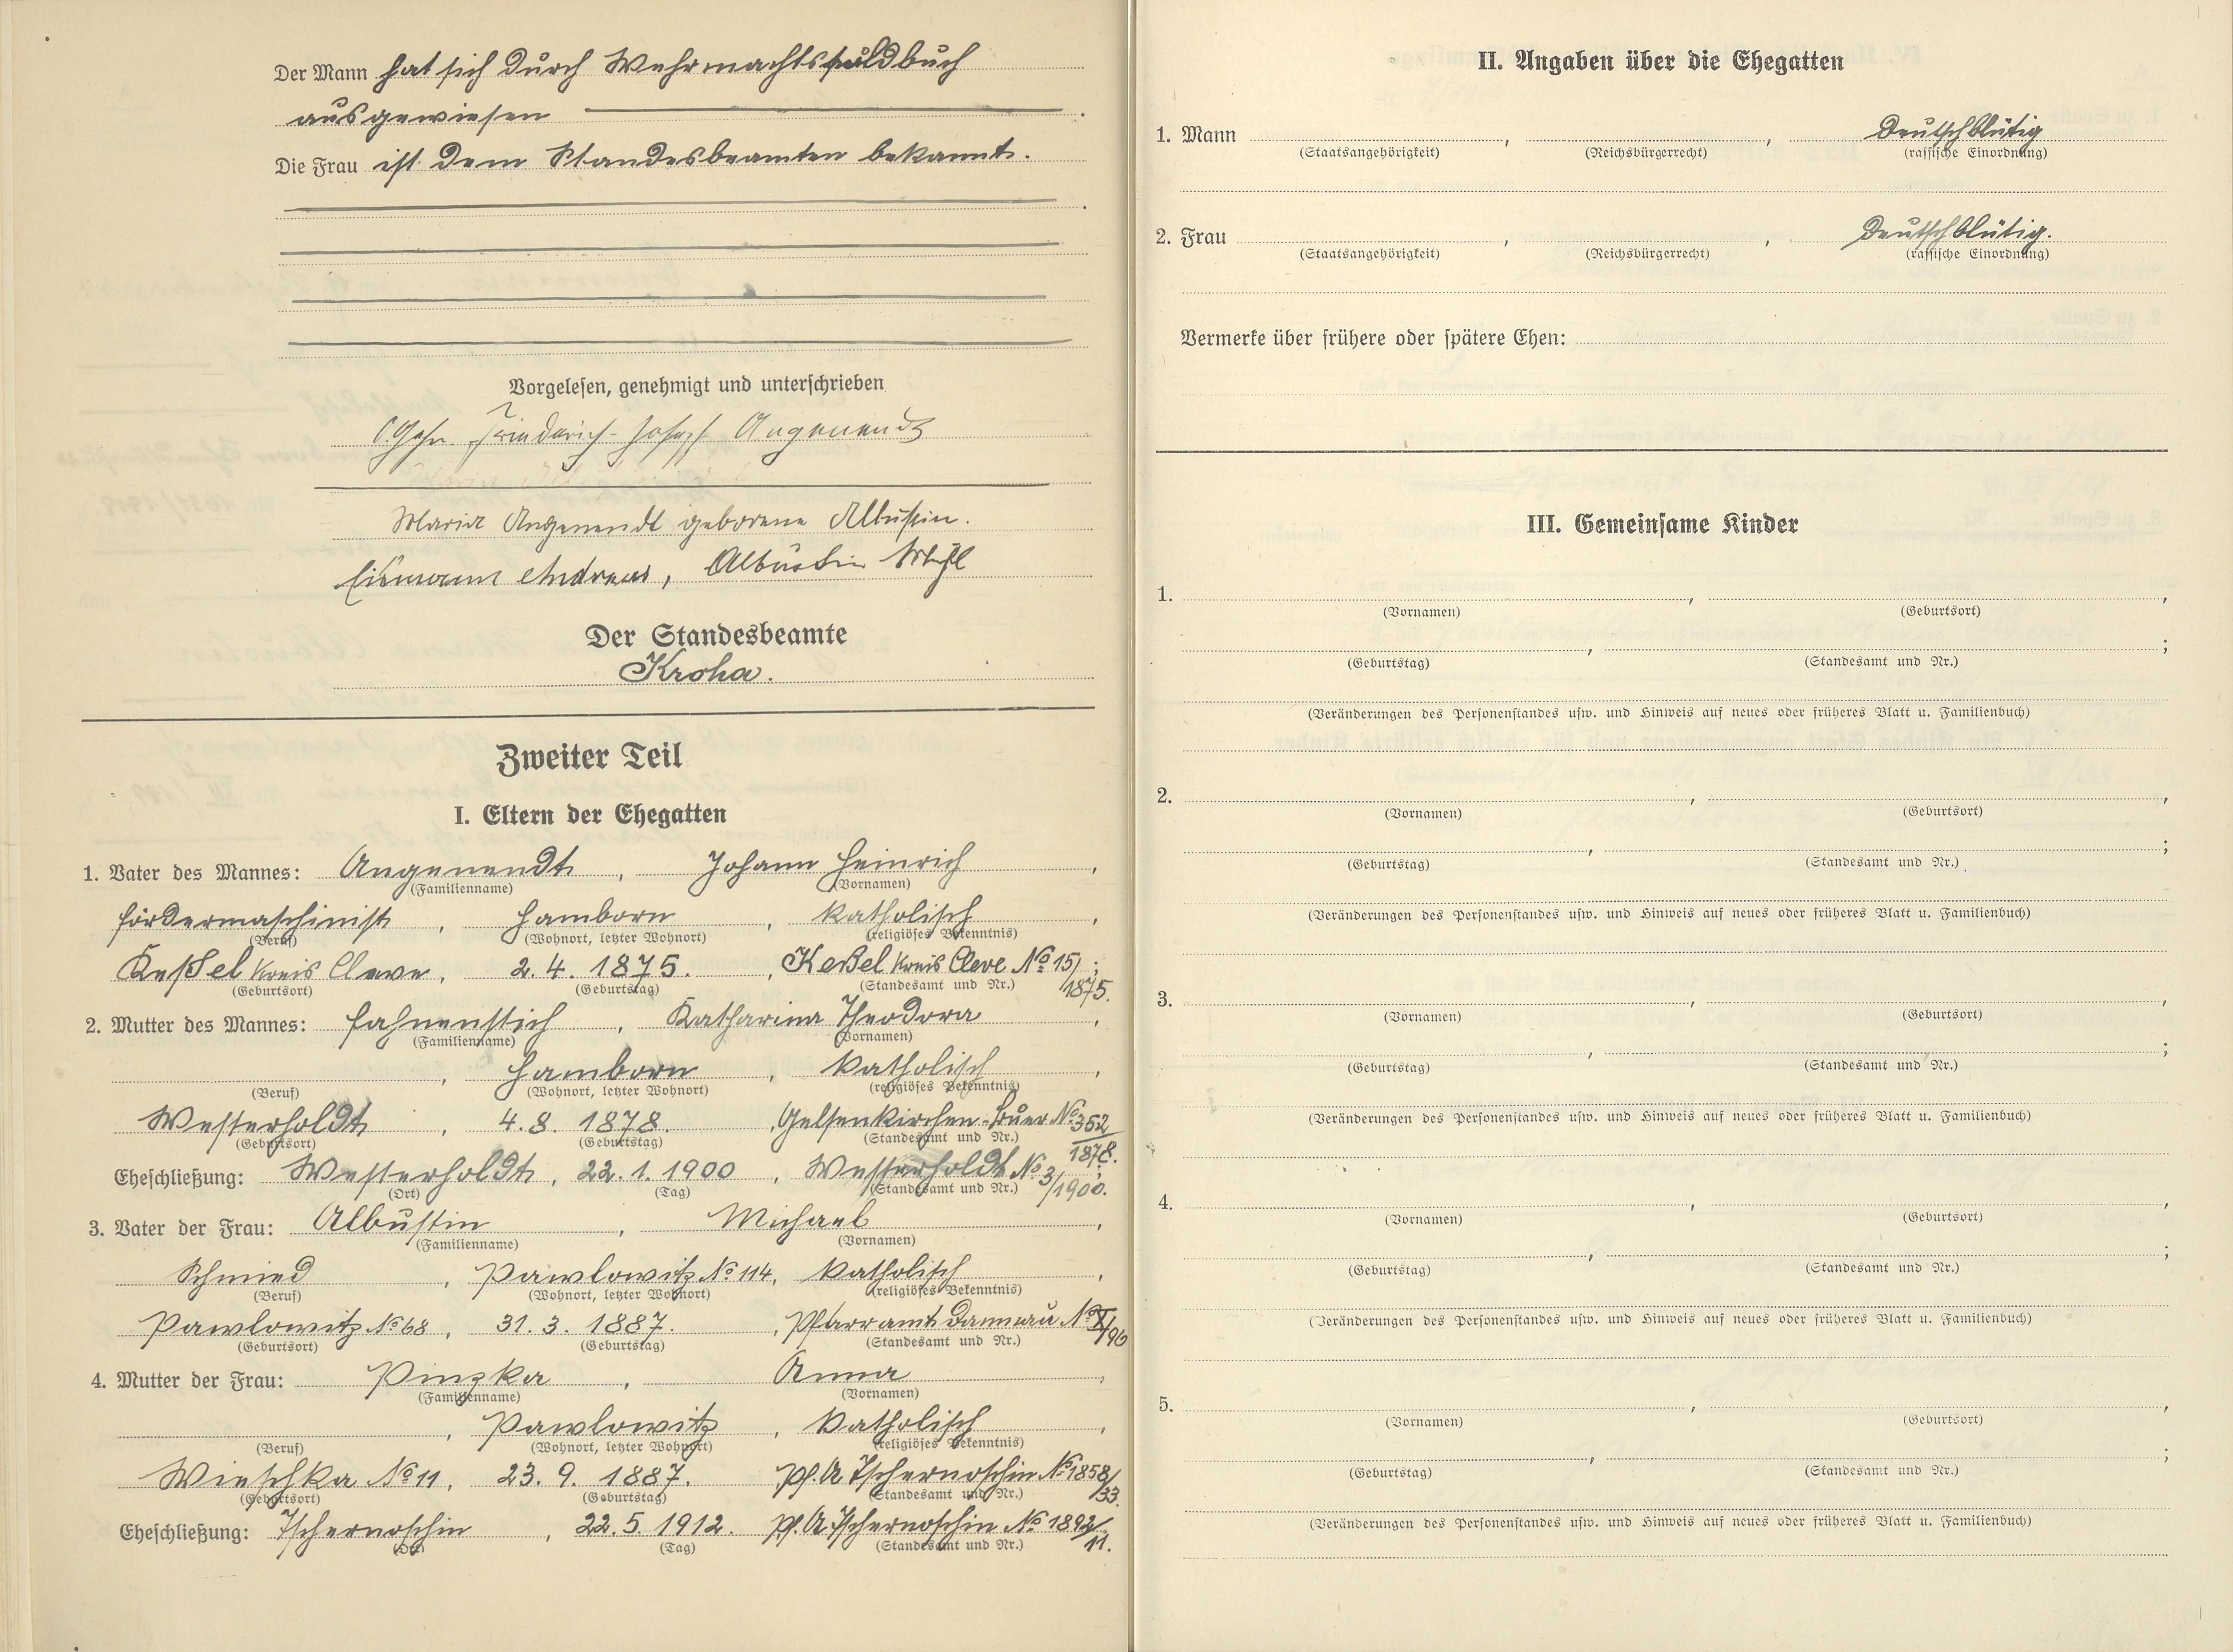 Der Mann hat sich durch Wehrmachtssoldbuch
ausgewiesen
Die Frau ist dem Standesbeamten bekannt.
Vorgelesen, genehmigt und unterschrieben
Friederich-Josef Angenendt
Maria Angenendt geborene Albustin.
Eismann Andreas, Albustin Mich
Der Standesbeamte
Kroha.
Zweiter Teil
I. Eltern der Ehegatten
1. Vater des Mannes: Angenendt, Johann Heinrich,
(Familienname) (Vornamen)
Fördermaschinist, Hamborn, katholisch,
(Beruf) (Wohnort, letzter Wohnort) (religiöses Bekenntnis)
Keßel Kreis Cleve, 2.4. 1875., Keßel Kreis Cleve No 15/1875.;
(Geburtsort) (Geburtstag) (Standesamt und Nr.)
2. Mutter des Mannes: Fahnenstich, Katharina Theodora,
(Familienname) (Vornamen)
, Hamborn, katholisch,
(Beruf) (Wohnort, letzter Wohnort) (religiöses Bekenntnis)
Westerholdt, 4.8. 1878., Gelsenkirchen-Buer No 352/1878.;
(Geburtsort) (Geburtstag) (Standesamt und Nr.)
Eheschließung: Westerholdt, 22.1.1900, Westerholdt No 3/1900.
(Ort) (Tag) (Standesamt und Nr.)
3. Vater der Frau: Albustin, Michael,
(Familienname) (Vornamen)
Schmied, Pawlowitz No 114, katholisch,
(Beruf) (Wohnort, letzter Wohnort) (religiöses Bekenntnis)
Pawlowitz No 68, 31.3. 1887., Pfarramt Damnau No X/96
(Geburtsort) (Geburtstag) (Standesamt und Nr.)
4. Mutter der Frau: Pinzka, Anna,
(Familienname) (Vornamen)
, Pawlowitz, katholisch,
(Beruf) (Wohnort, letzter Wohnort) (religiöses Bekenntnis)
Wieschka No 11, 23.9. 1887. Pf. A Tschernoschin No 1858/33.
(Geburtsort) (Geburtstag) (Standesamt und Nr.)
Eheschließung: Tschernoschin, 22.5 1912. Pf. A. Tschernoschin No 1892/11.
(Ort) (Tag) (Standesamt und Nr.)
II. Angaben über die Ehegatten
1. Mann , , Deutschblütig
(Staatsangehörigkeit) (Reichsbürgerrecht) (rassische Einordnung)
2. Frau , , Deutschblütig.
(Staatsangehörigkeit) (Reichsbürgerrecht) (rassische Einordnung)
Vermerke über frühere oder spätere Ehen:
III. Gemeinsame Kinder
1. , ,
(Vornamen) (Geburtsort)
, ;
(Geburtstag) (Standesamt und Nr.)
(Veränderungen des Personenstandes usw. und Hinweis auf neues oder früheres Blatt u. Familienbuch)
2. , ,
(Vornamen) (Geburtsort)
, ;
(Geburtstag) (Standesamt und Nr.)
(Veränderungen des Personenstandes usw. und Hinweis auf neues oder früheres Blatt u. Familienbuch)
3. , ,
(Vornamen) (Geburtsort)
, ;
(Geburtstag) (Standesamt und Nr.)
(Veränderungen des Personenstandes usw. und Hinweis auf neues oder früheres Blatt u. Familienbuch)
4. , ,
(Vornamen) (Geburtsort)
, ;
(Geburtstag) (Standesamt und Nr.)
(Veränderungen des Personenstandes usw. und Hinweis auf neues oder früheres Blatt u. Familienbuch)
5. , ,
(Vornamen) (Geburtsort)
, ;
(Geburtstag) (Standesamt und Nr.)
(Veränderungen des Personenstandes usw. und Hinweis auf neues oder früheres Blatt u. Familienbuch)